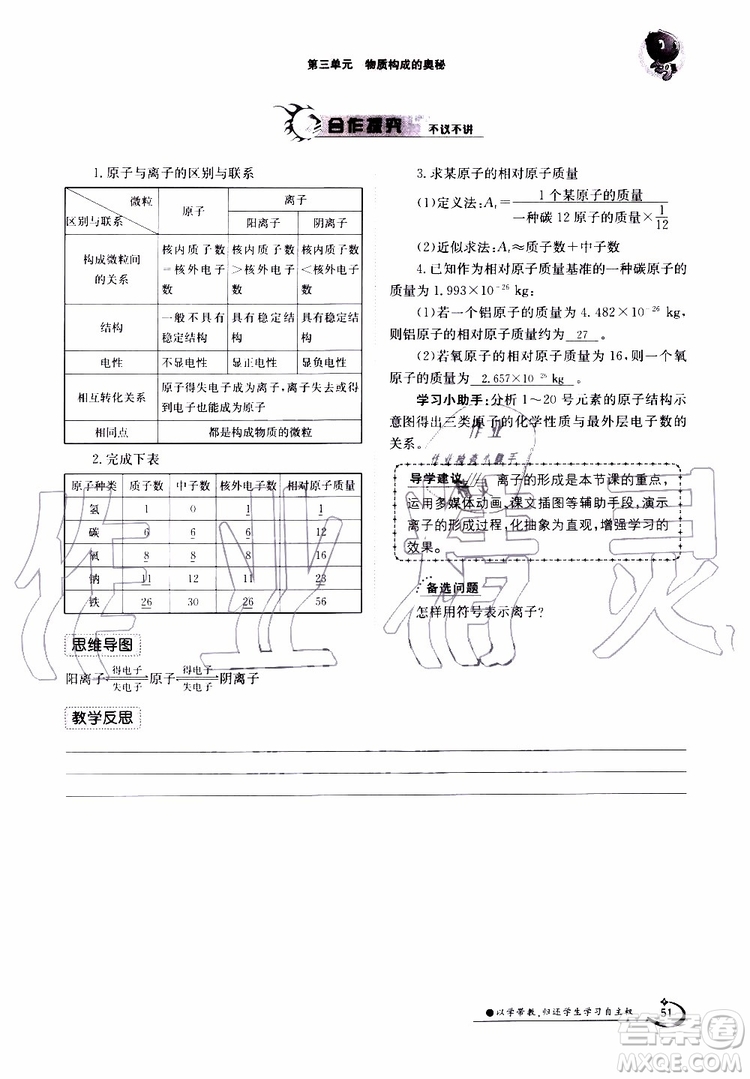 第三单元 物质构成的奥秘
合作探究 不议不讲
1.原子与离子的区别与联系
微粒
区别与联系
原子
离子
阳离子
阴离子
构成微粒间的关系
核内质子数=核外电子数
核内质子数>核外电子数
核内质子数<核外电子数
结构
一般不具有稳定结构
具有稳定结构
具有稳定结构
电性
不显电性
显正电性
显负电性
相互转化关系
原子得失电子成为离子,离子失去或获得电子成为原子
相同点
都是构成物质的微粒
2.完成下表
原子种类 质子数 中子数 核外电子数 相对原子质量
氢 1 0 1 1
碳 6 6 6 12
氧 8 8 8 16
钠 11 12 11 23
铁 26 30 26 56
思维导图
阳离子 得电子 失电子 原子 得电子 失电子 阴离子
教学反思
3.求某原子的相对原子质量
(1)定义法:Ar=1个某原子的质量/一种碳12原子的质量×1/12
(2)近似求法:Ar≈质子数+中子数
4.已知作为相对原子质量基准的一种碳原子的
质量为1.993×10⁻²⁶ kg:
(1)若一个铝原子的质量为4.482×10⁻²⁶ kg,
则铝原子的相对原子质量约为 27 。
(2)若氧原子的相对原子质量为16,则一个氧
原子的质量为 2.657×10⁻²⁶ kg 。
学习小助手:分析1~20号元素的原子结构示
意图得出三类原子的化学性质与最外层电子数的
关系。
导学建议 离子的形成是本节课的重点,
运用多媒体动画、课文插图等辅助手段,演示
离子的形成过程,化抽象为直观,增强学习的
效果。
备选问题
怎样用符号表示离子?
作业
作业检查小助手
精灵
作业精灵
●以学带教,归还学生学习自主权
51
答案圈
MXQE.COM